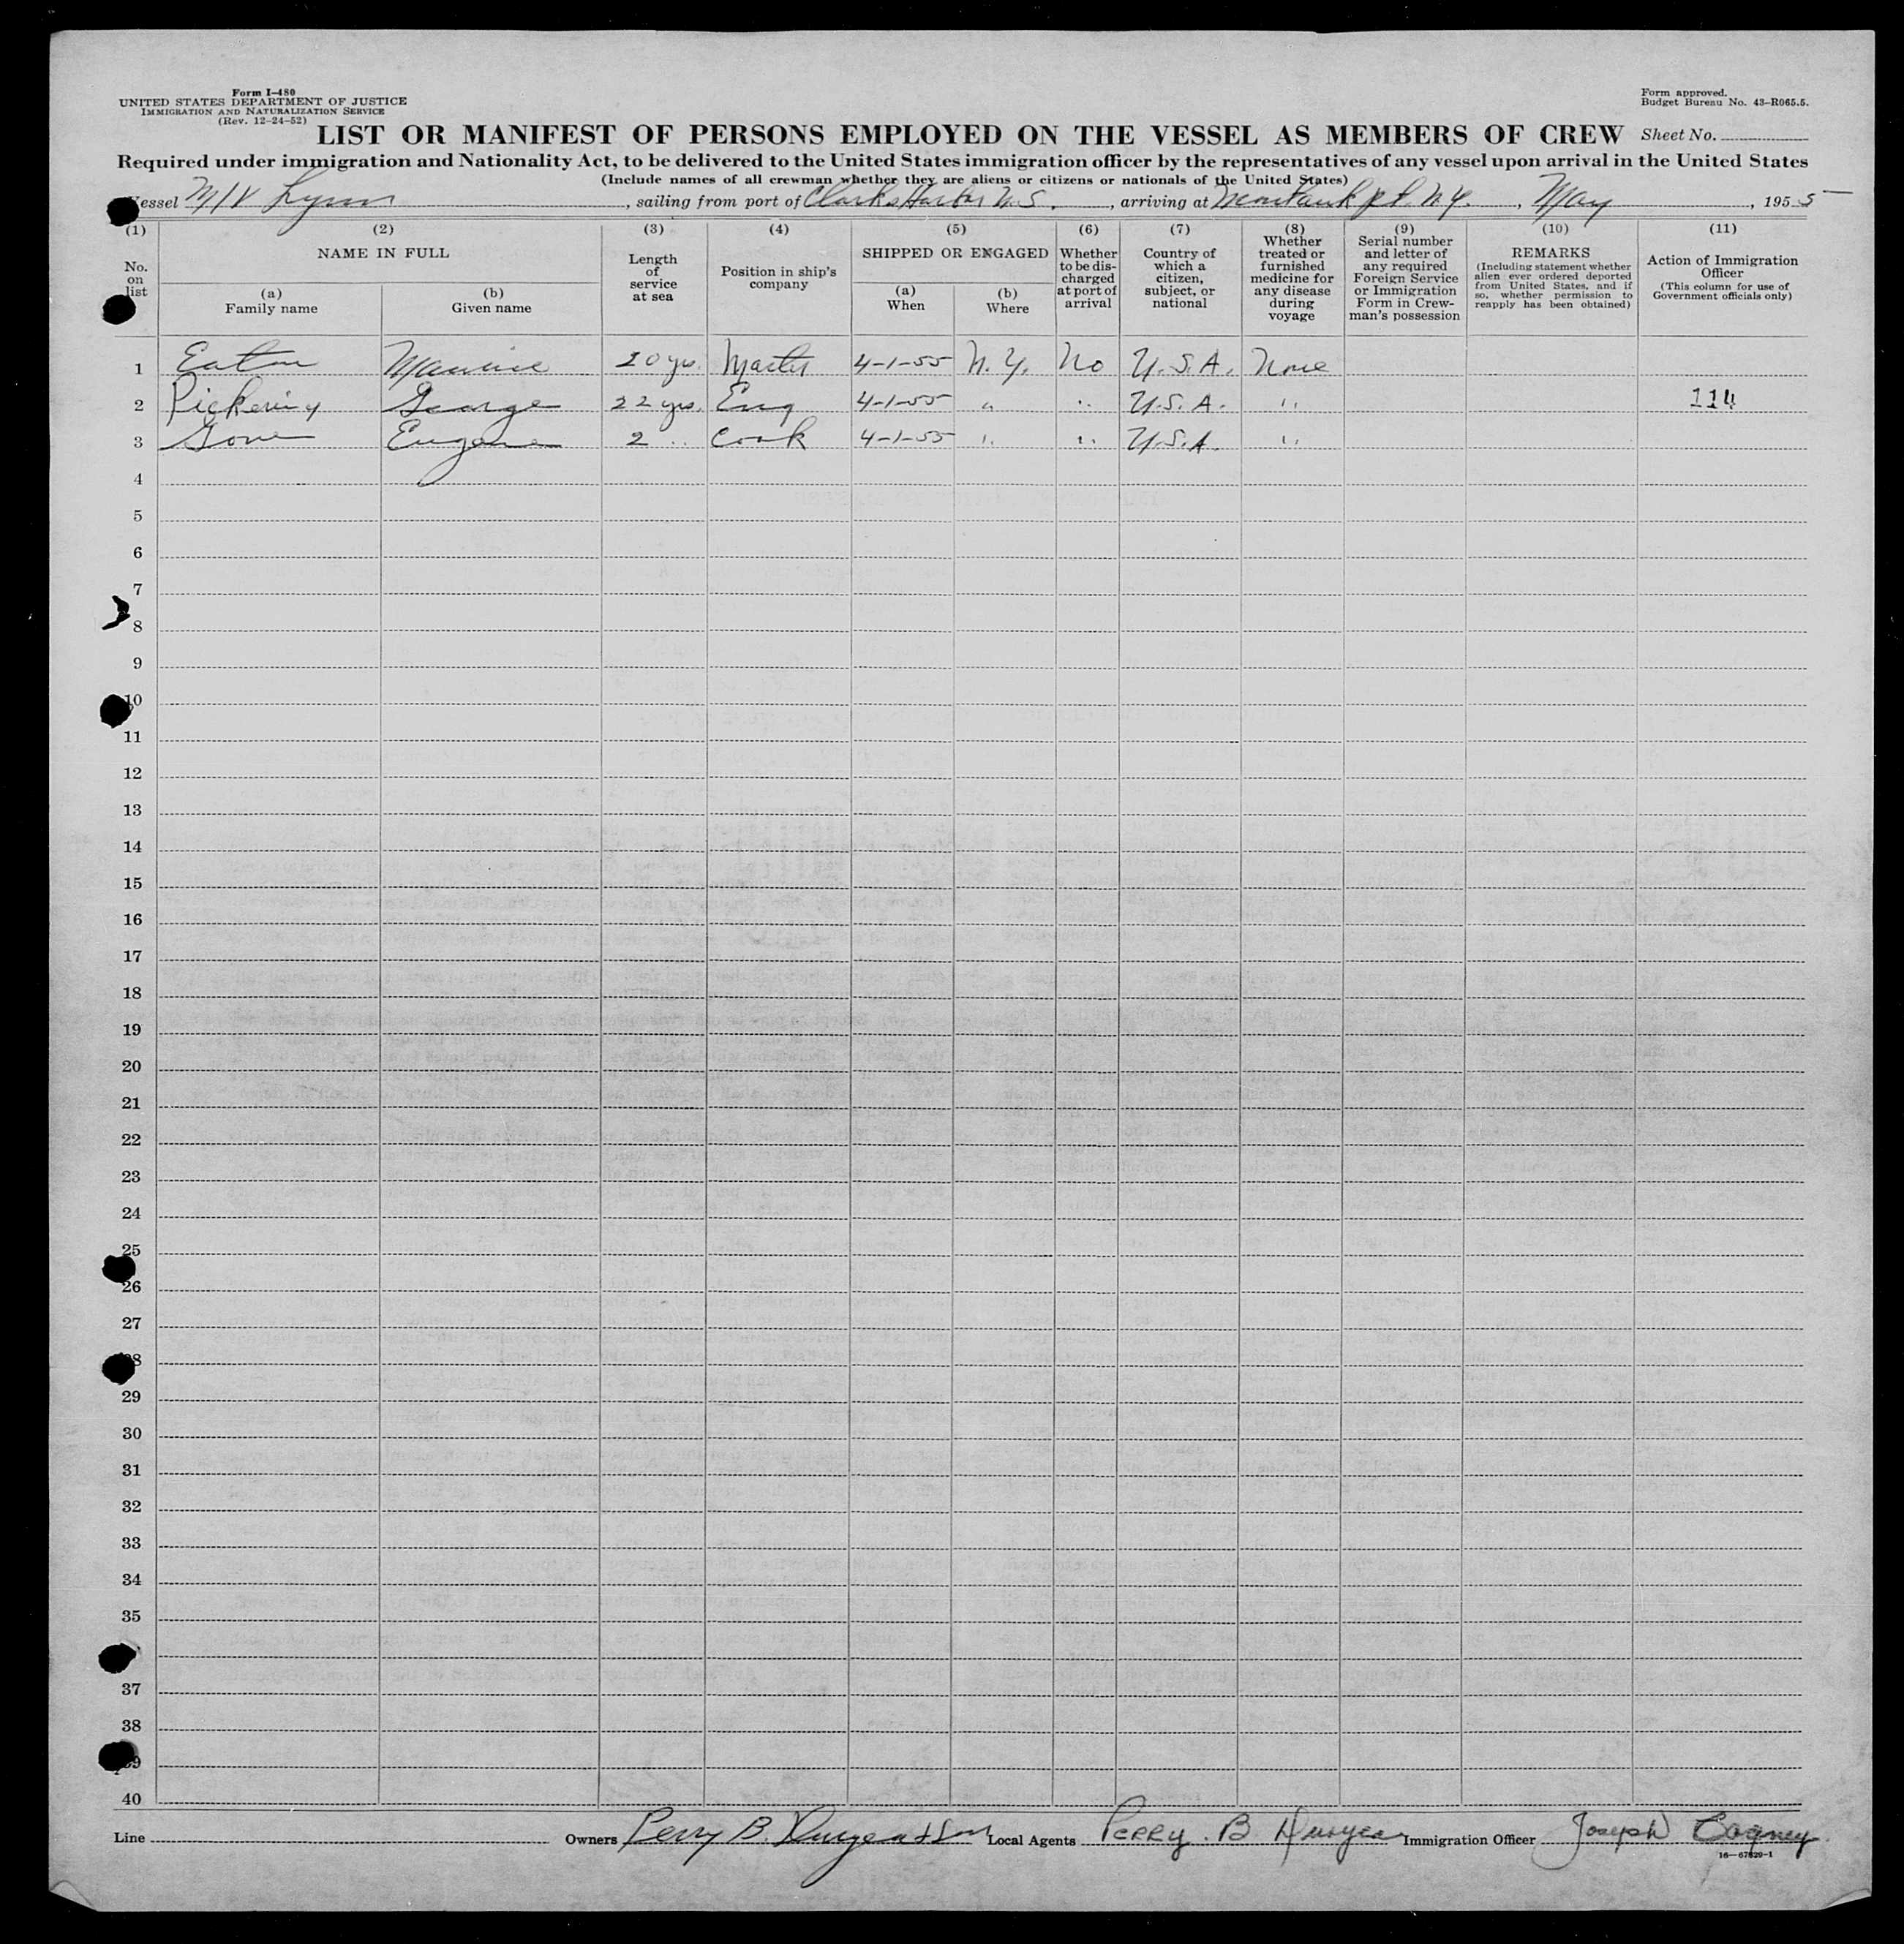 Form I-480
UNITED STATES DEPARTMENT OF JUSTICE
IMMIGRATION AND NATURALIZATION SERVICE
(Rev. 12-24-52)
Form approved.
Budget Bureau No. 43-R065.5.
LIST OR MANIFEST OF PERSONS EMPLOYED ON THE VESSEL AS MEMBERS OF CREW Sheet No.
Required under immigration and Nationality Act, to be delivered to the United States immigration officer by the representatives of any vessel upon arrival in the United States
(Include names of all crewman whether they are aliens or citizens or nationals of the United States)
Vessel M/V Lynn, sailing from port of Clarks Harbor N.S., arriving at Montauk pt. N.Y., May, 1955
(1) (2) (3) (4) (5) (6) (7) (8) (9) (10) (11)
No. on list
NAME IN FULL
(a) Family name
(b) Given name
Length of service at sea
Position in ship's company
SHIPPED OR ENGAGED
(a) When
(b) Where
Whether to be discharged at port of arrival
Country of which a citizen, subject, or national
Whether treated or furnished medicine for any disease during voyage
Serial number and letter of any required Foreign Service or Immigration Form in Crewman's possession
REMARKS
(Including statement whether alien ever ordered deported from United States, and if so, whether permission to reapply has been obtained)
Action of Immigration Officer
(This column for use of Government officials only)
1 Eaton Maurice 20 yrs. Master 4-1-55 N.Y. No U.S.A. None
2 Pickering George 22 yrs. Eng 4-1-55 " " U.S.A. " 114
3 Gove Eugene 2 " Cook 4-1-55 " " U.S.A. "
4
5
6
7
8
9
10
11
12
13
14
15
16
17
18
19
20
21
22
23
24
25
26
27
28
29
30
31
32
33
34
35
37
38
39
40
Line Owners Perry B. Duryea & Son Local Agents Perry. B Duryea Immigration Officer Joseph Cagney
16—67829-1